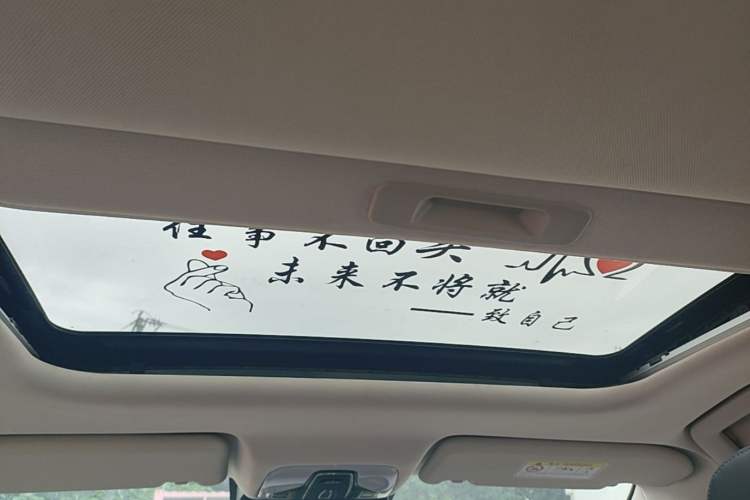 往事不回头
未来不将就
——致自己